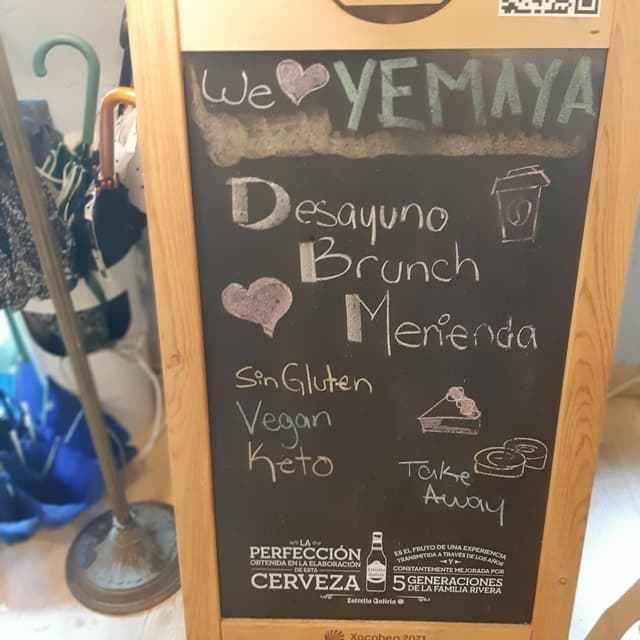 We YEMAYA
Desayuno
Brunch
Merienda
Sin Gluten
Vegan
Keto
Take
Away
LA
PERFECCIÓN
OBTENIDA EN LA ELABORACIÓN
DE ESTA
CERVEZA
ES EL FRUTO DE UNA EXPERIENCIA
TRANSMITIDA A TRAVÉS DE LOS AÑOS
Y
CONSTANTEMENTE MEJORADA POR
5 GENERACIONES
DE LA FAMILIA RIVERA
Estrella Galicia
Xacobeo 2021